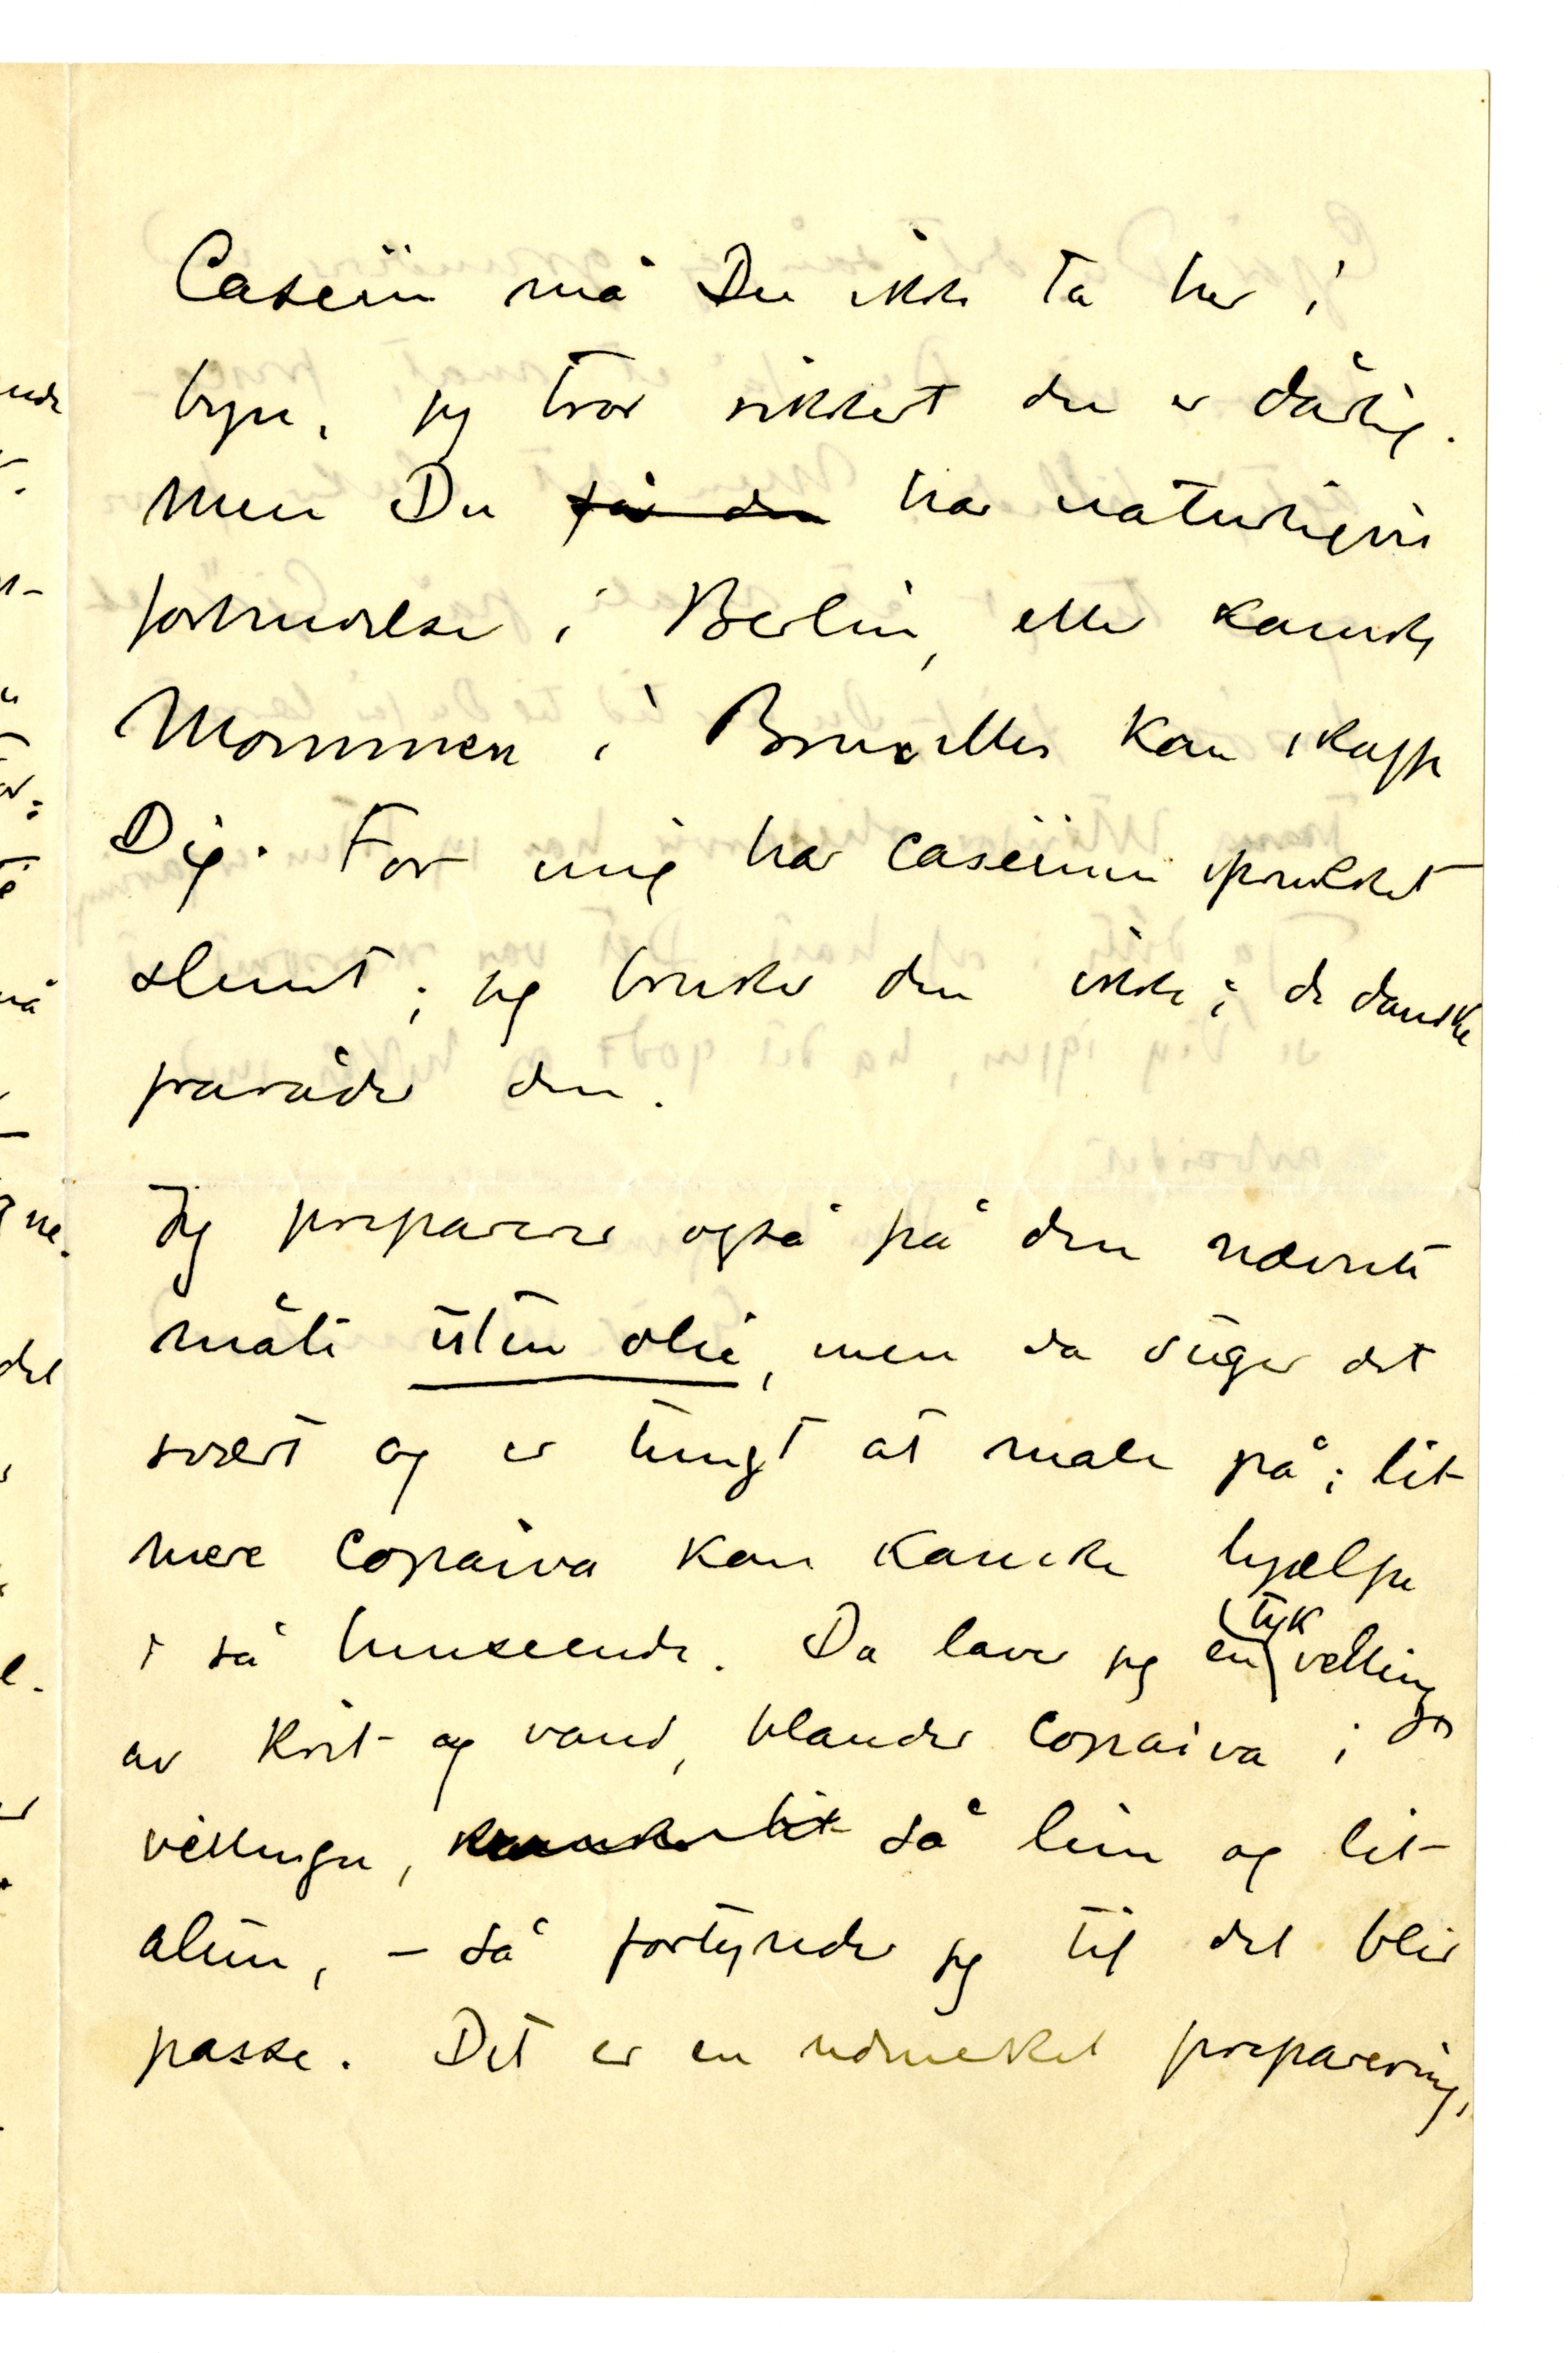 Caseïn må Du ikke ta her i
byen, jeg tror sikkert den er dårlig.
Men Du får den har naturligvis
forbindelser i Berlin, eller kanske
Mommen i Bruxelles kan skaffe
Dig. For mig har caseïnen sprukket
slemt; jeg bruker den ikke; de danske
fraråder den.
Jeg preparerer også på den nævnte
måte uten olie, men da suger det
svært og er tungt at male på; lit
mere copaiva kan kanske hjælpe
i så henseende. Da laver jeg en tyk velling
av krit og vand, blander copaiva i
vellingen, kanske lit så lim og lit
alun, – så fortynder jeg til det blir
passe. Det er en udmerket preparering,